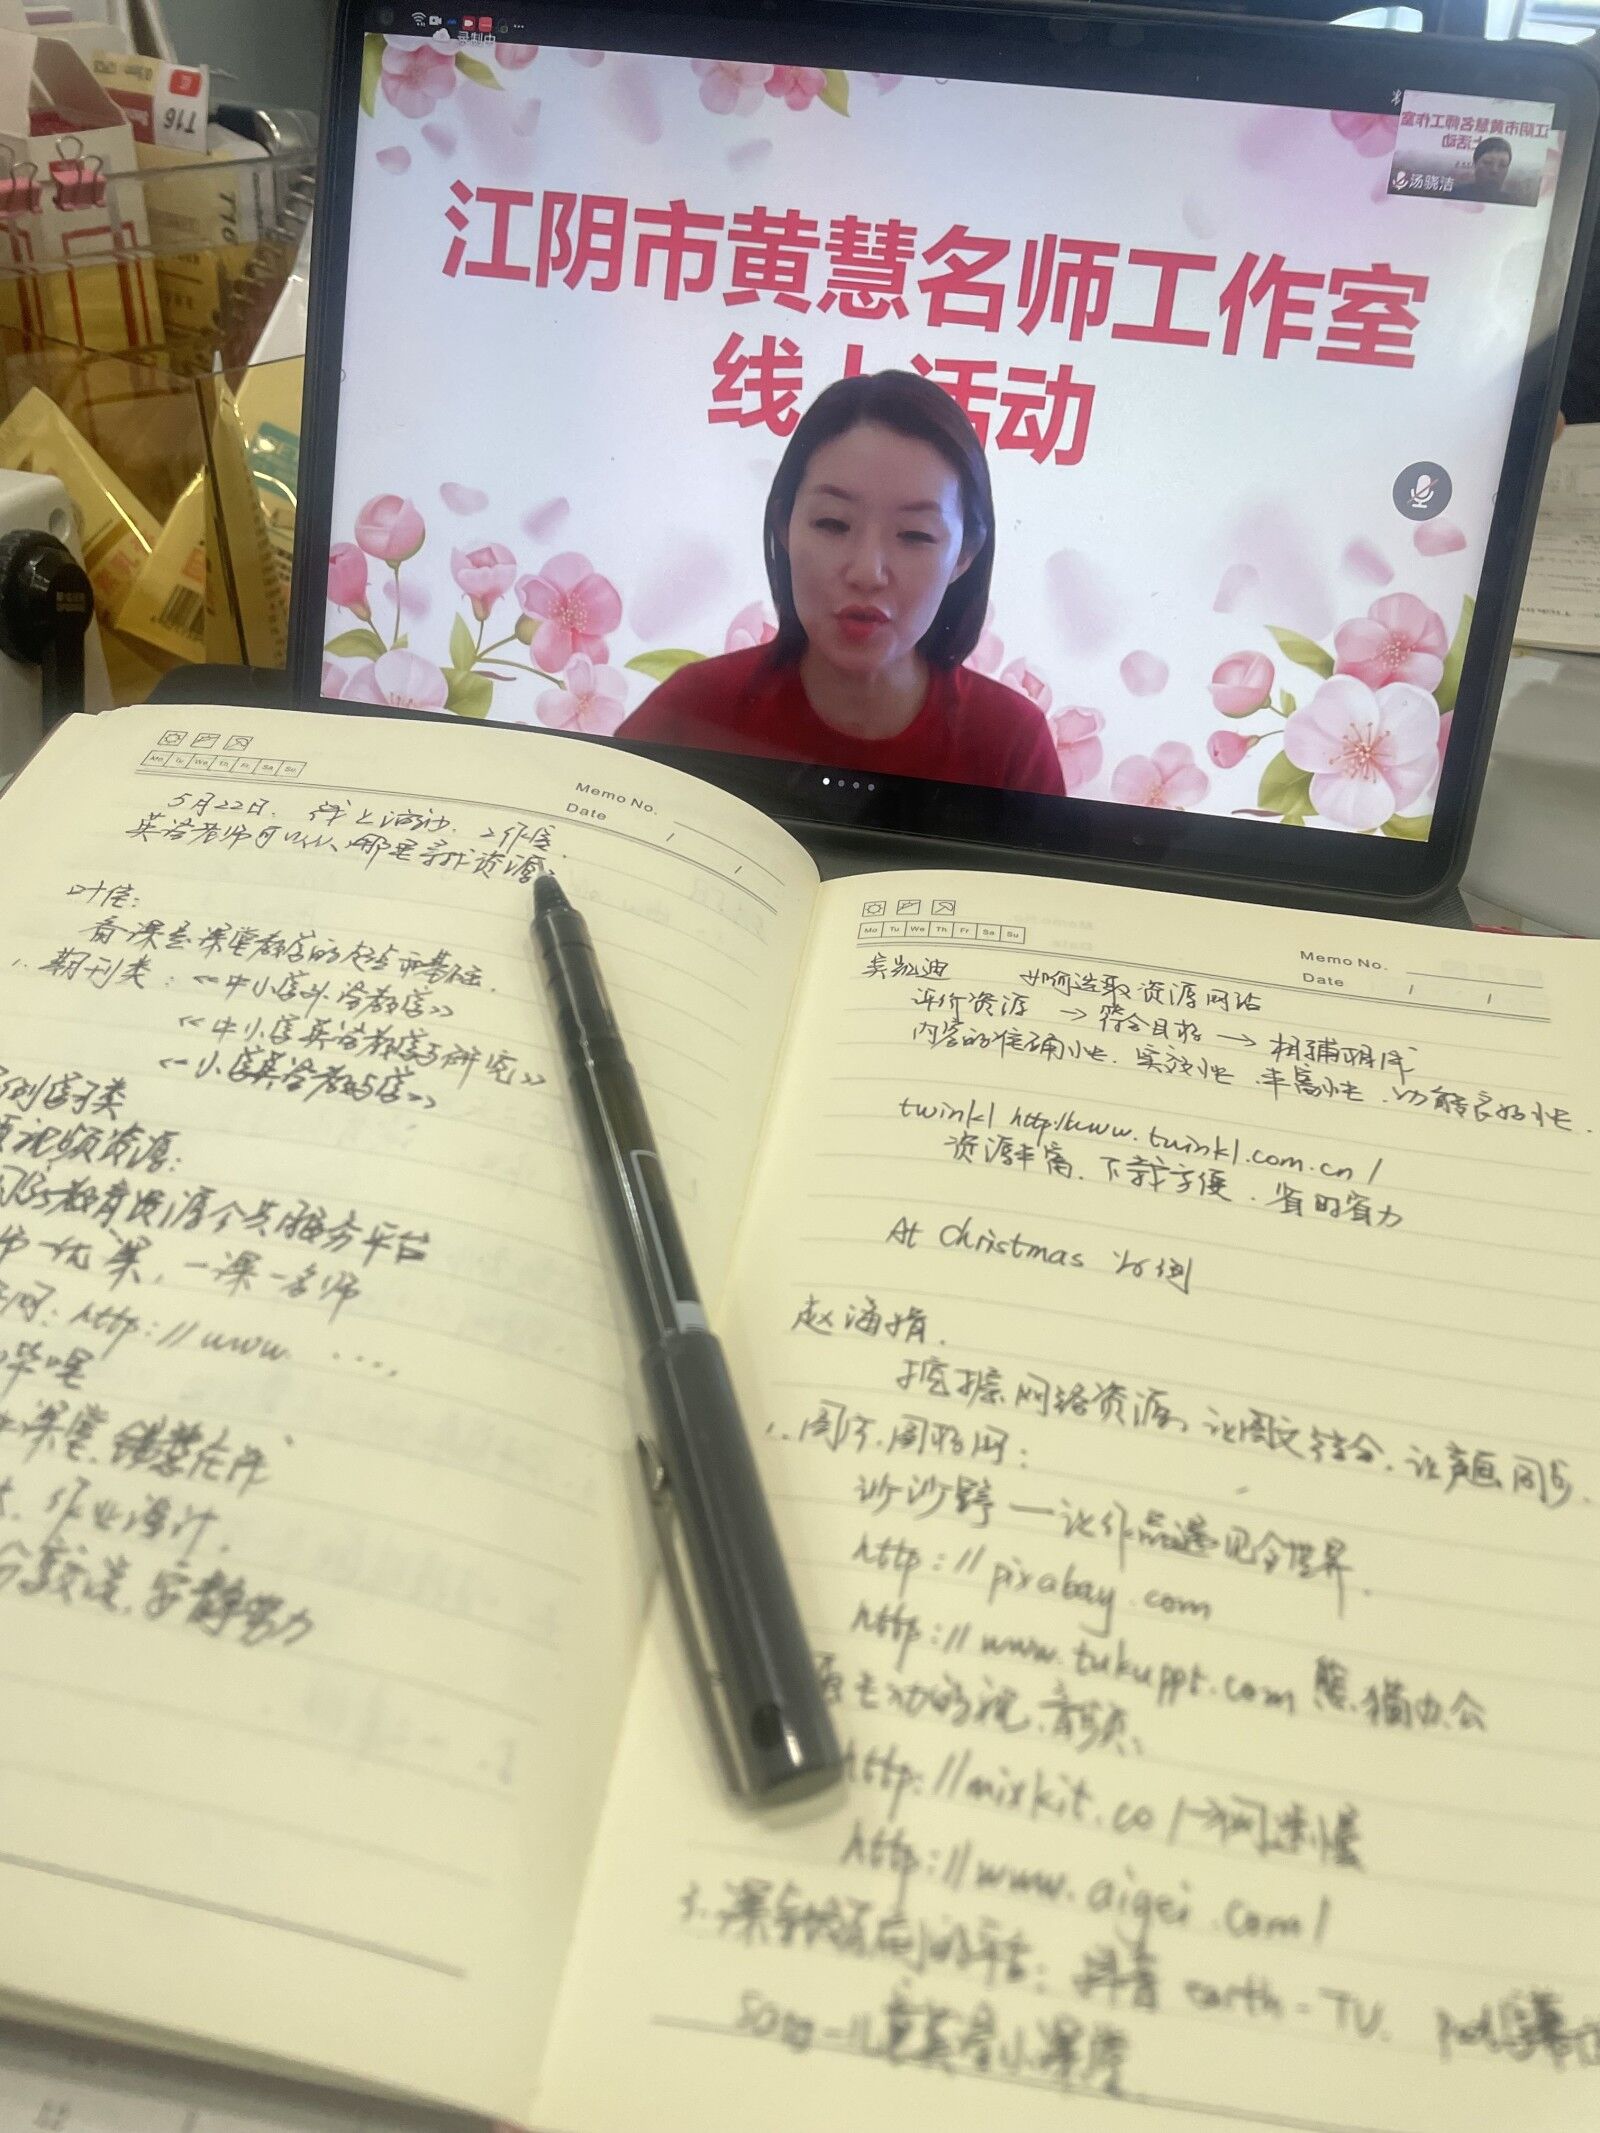 录制中
江阴市黄慧名师工作室
线上活动
江阴市黄慧名师工作室
汤晓洁
T16
Mo Tu We Th Fr Sa Su
Memo No.
Date
5月22日. 线上活动.
英语老师可以从哪里寻找资源
叶佳:
备课是课堂教学的起点和基础.
1. 期刊类: 《中小学外语教学》
《中小学英语教学与研究》
《小学英语教与学》
视频资源:
教育资源公共服务平台
一优课, 一课一名师
网: http://www. ....
哔哩
作业设计.
安静努力
Mo Tu We Th Fr Sa Su
Memo No.
Date
吴凯迪 如何选取资源网站
评价资源 → 符合目标 → 相辅相成
内容的准确性. 实效性. 丰富性. 功能良好性.
twinkl http://www.twinkl.com.cn/
资源丰富. 下载方便. 省时省力
At Christmas 为例
赵海娟.
挖掘网络资源, 让图文结合, 让声画同步.
1. 图片.图标网:
沙沙野—让作品遇见全世界.
http://pixabay.com
http://www.tukuppt.com 熊猫办公
视.音频:
http://mixkit.co/→网速慢
http://www.aigei.com/
3. 平台: 抖音 earth-TV.
song-儿童英语小课堂